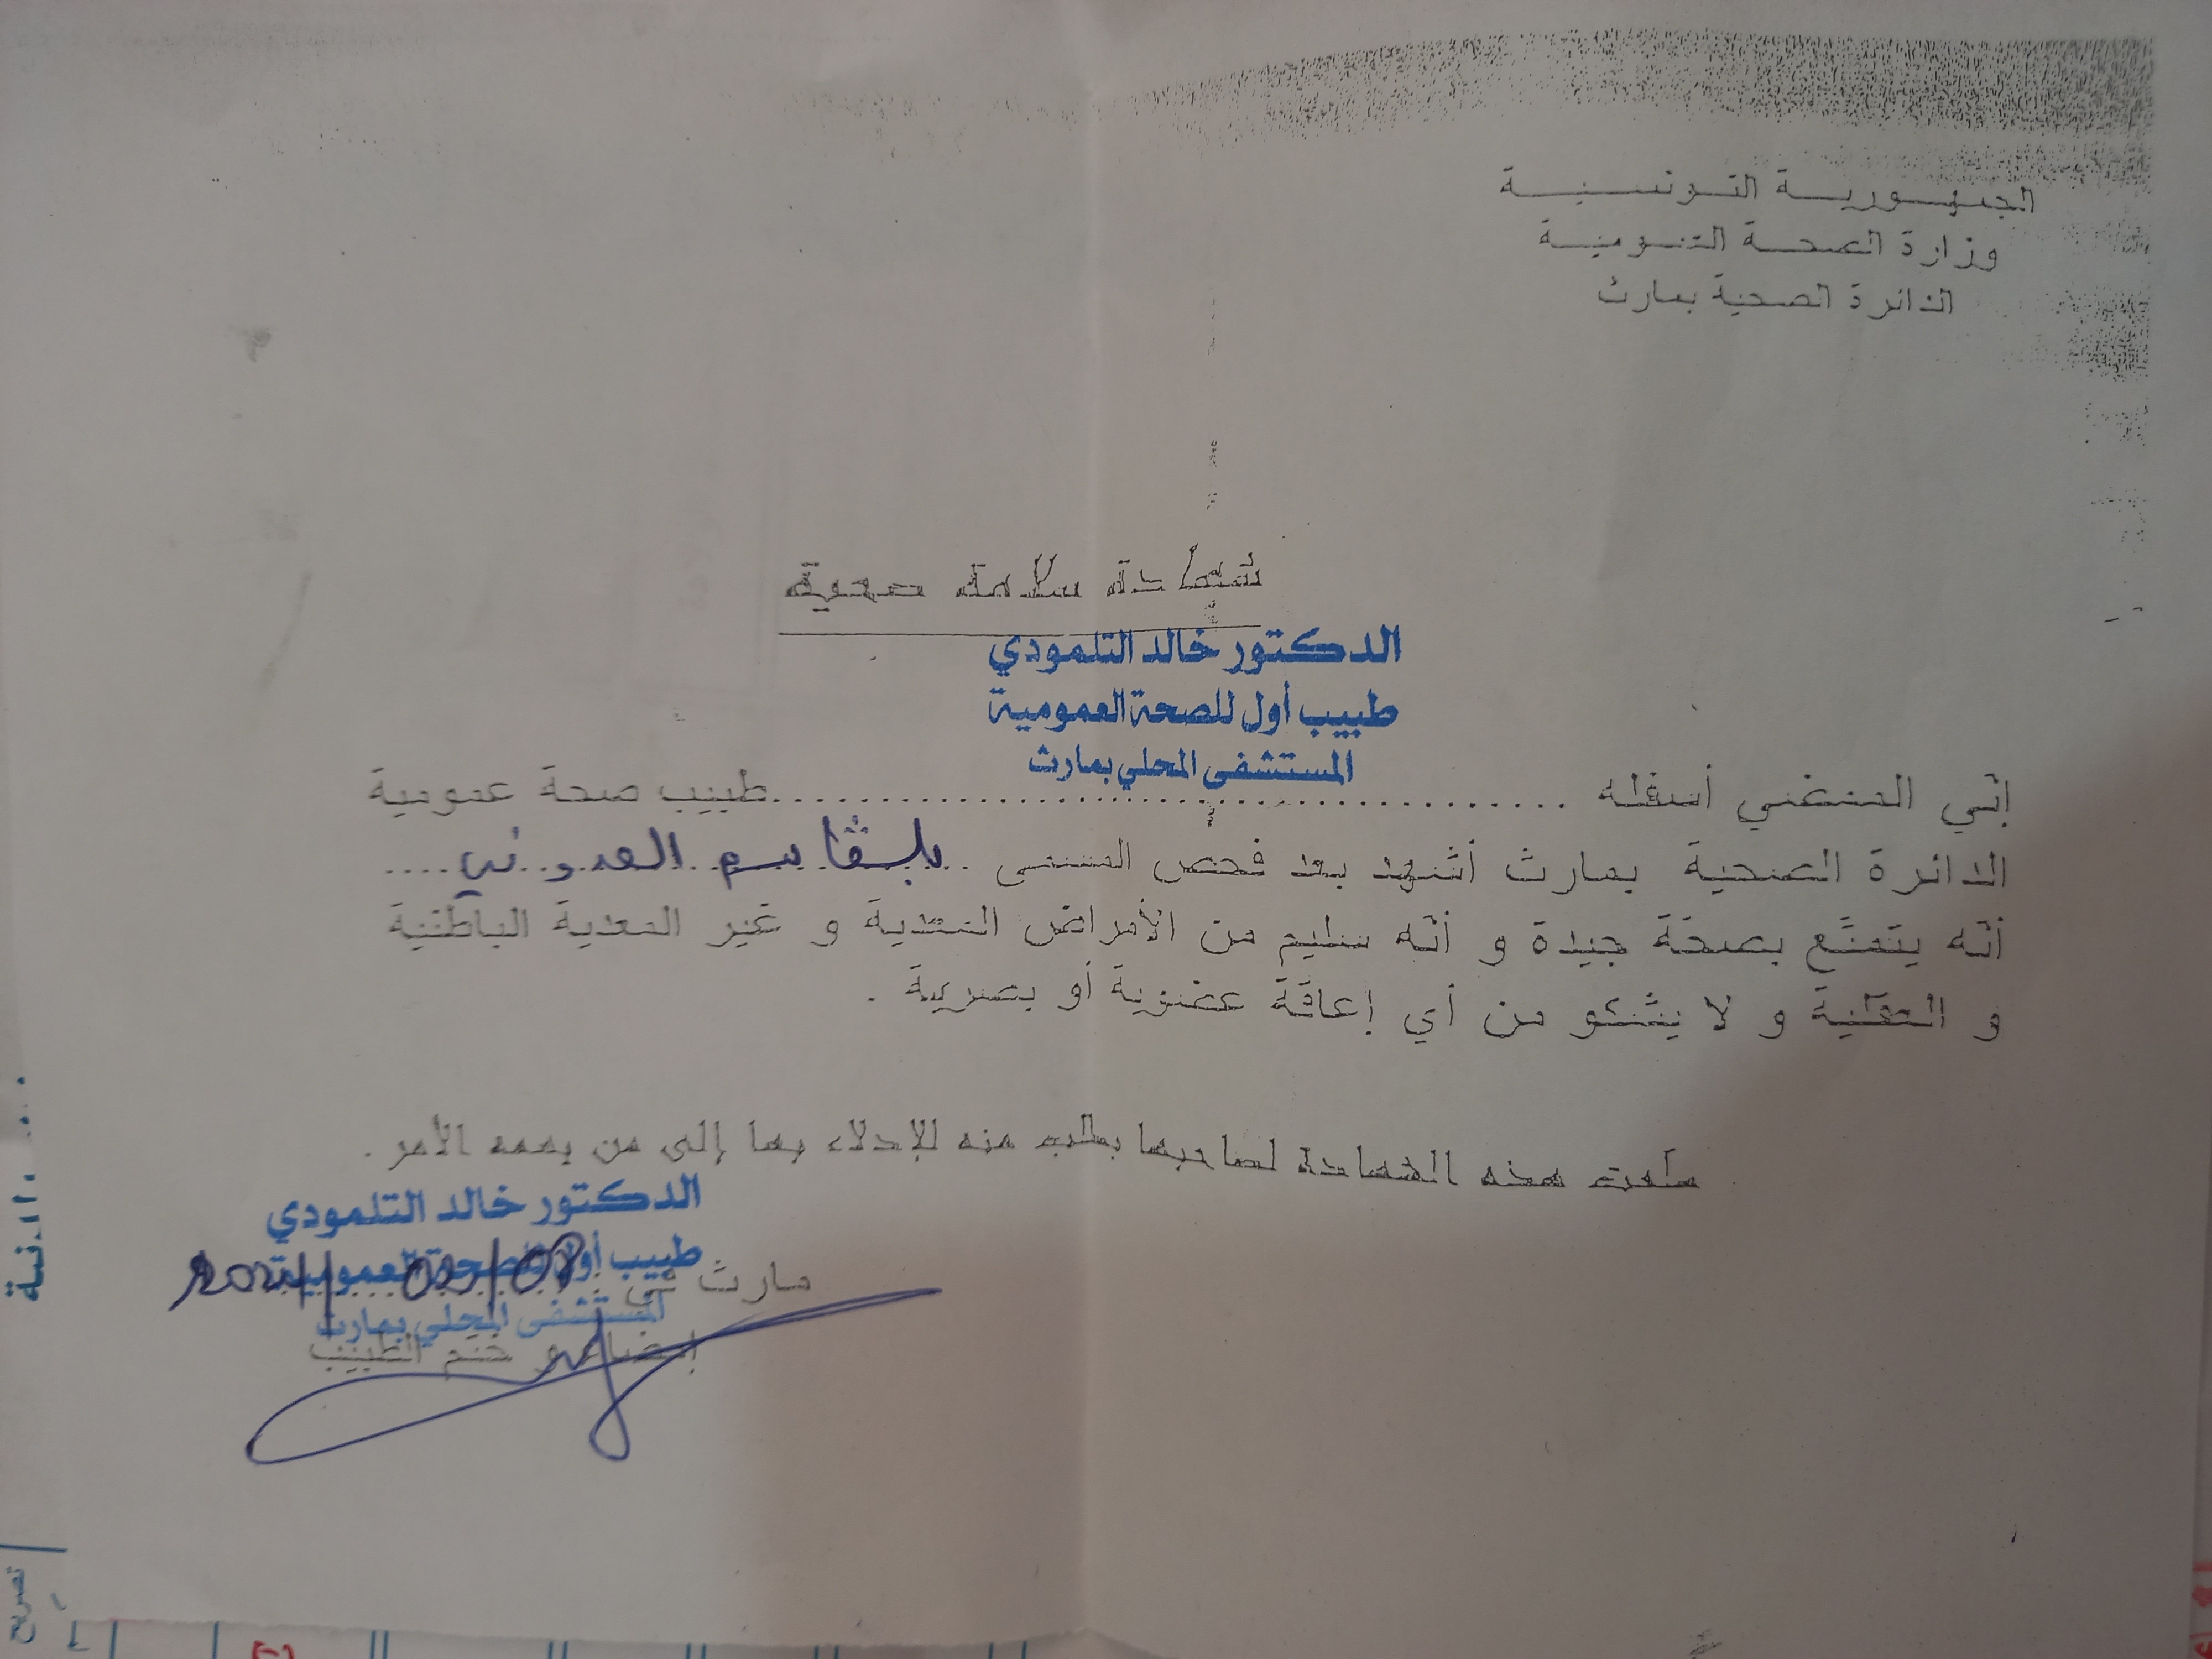 الجمهورية التونسية
وزارة الصحة العمومية
الدائرة الصحية بمارث
شهادة سلامة صحية
الدكتور خالد التلمودي
طبيب أول للصحة العمومية
المستشفى المحلي بمارث
إنّي الممضي أسفله ........................................ طبيب صحة عمومية
الدائرة الصحية بمارث أشهد بعد فحص المسمى .. بلـڤاسم العدوني ....
أنّه يتمتّع بصحّة جيدة و أنّه سليم من الأمراض المعدية و غير المعدية الباطنية
و العقلية و لا يشكو من أي إعاقة عضوية أو بصرية .
سلّمت هذه الشهادة لصاحبها بطلب منه للإدلاء بها إلى من يهمه الأمر .
الدكتور خالد التلمودي
طبيب أول للصحة العمومية
مارث في
المستشفى المحلي بمارث
إمضاء و ختم الطبيب
تصريح